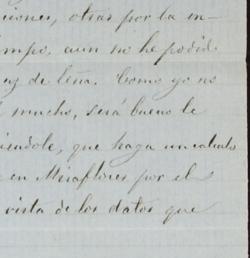 ciones, otras por la in-
empo. aun no he podid
az de leña. Como yo no
mucho, será bueno le
iendole, que haga un calculo
en Miraflores por el
vista de los datos que